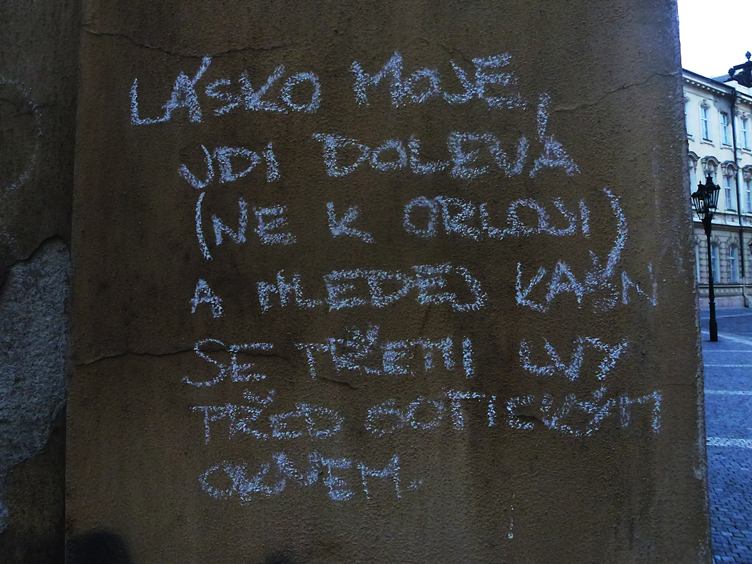 LÁSKO MOJE,
JDI DOLEVA
(NE K ORLOJI)
A HLEDEJ KAŠN
SE TŘEMI LVY
PŘED GOTICKÝM
OKNEM.